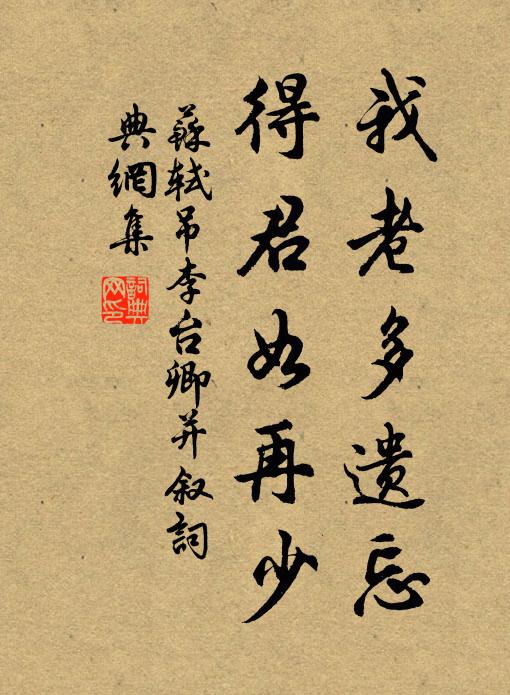 我老多遺忘
得君如再少
蘇軾吊李台卿并叙詞
典網集
詞典
网印